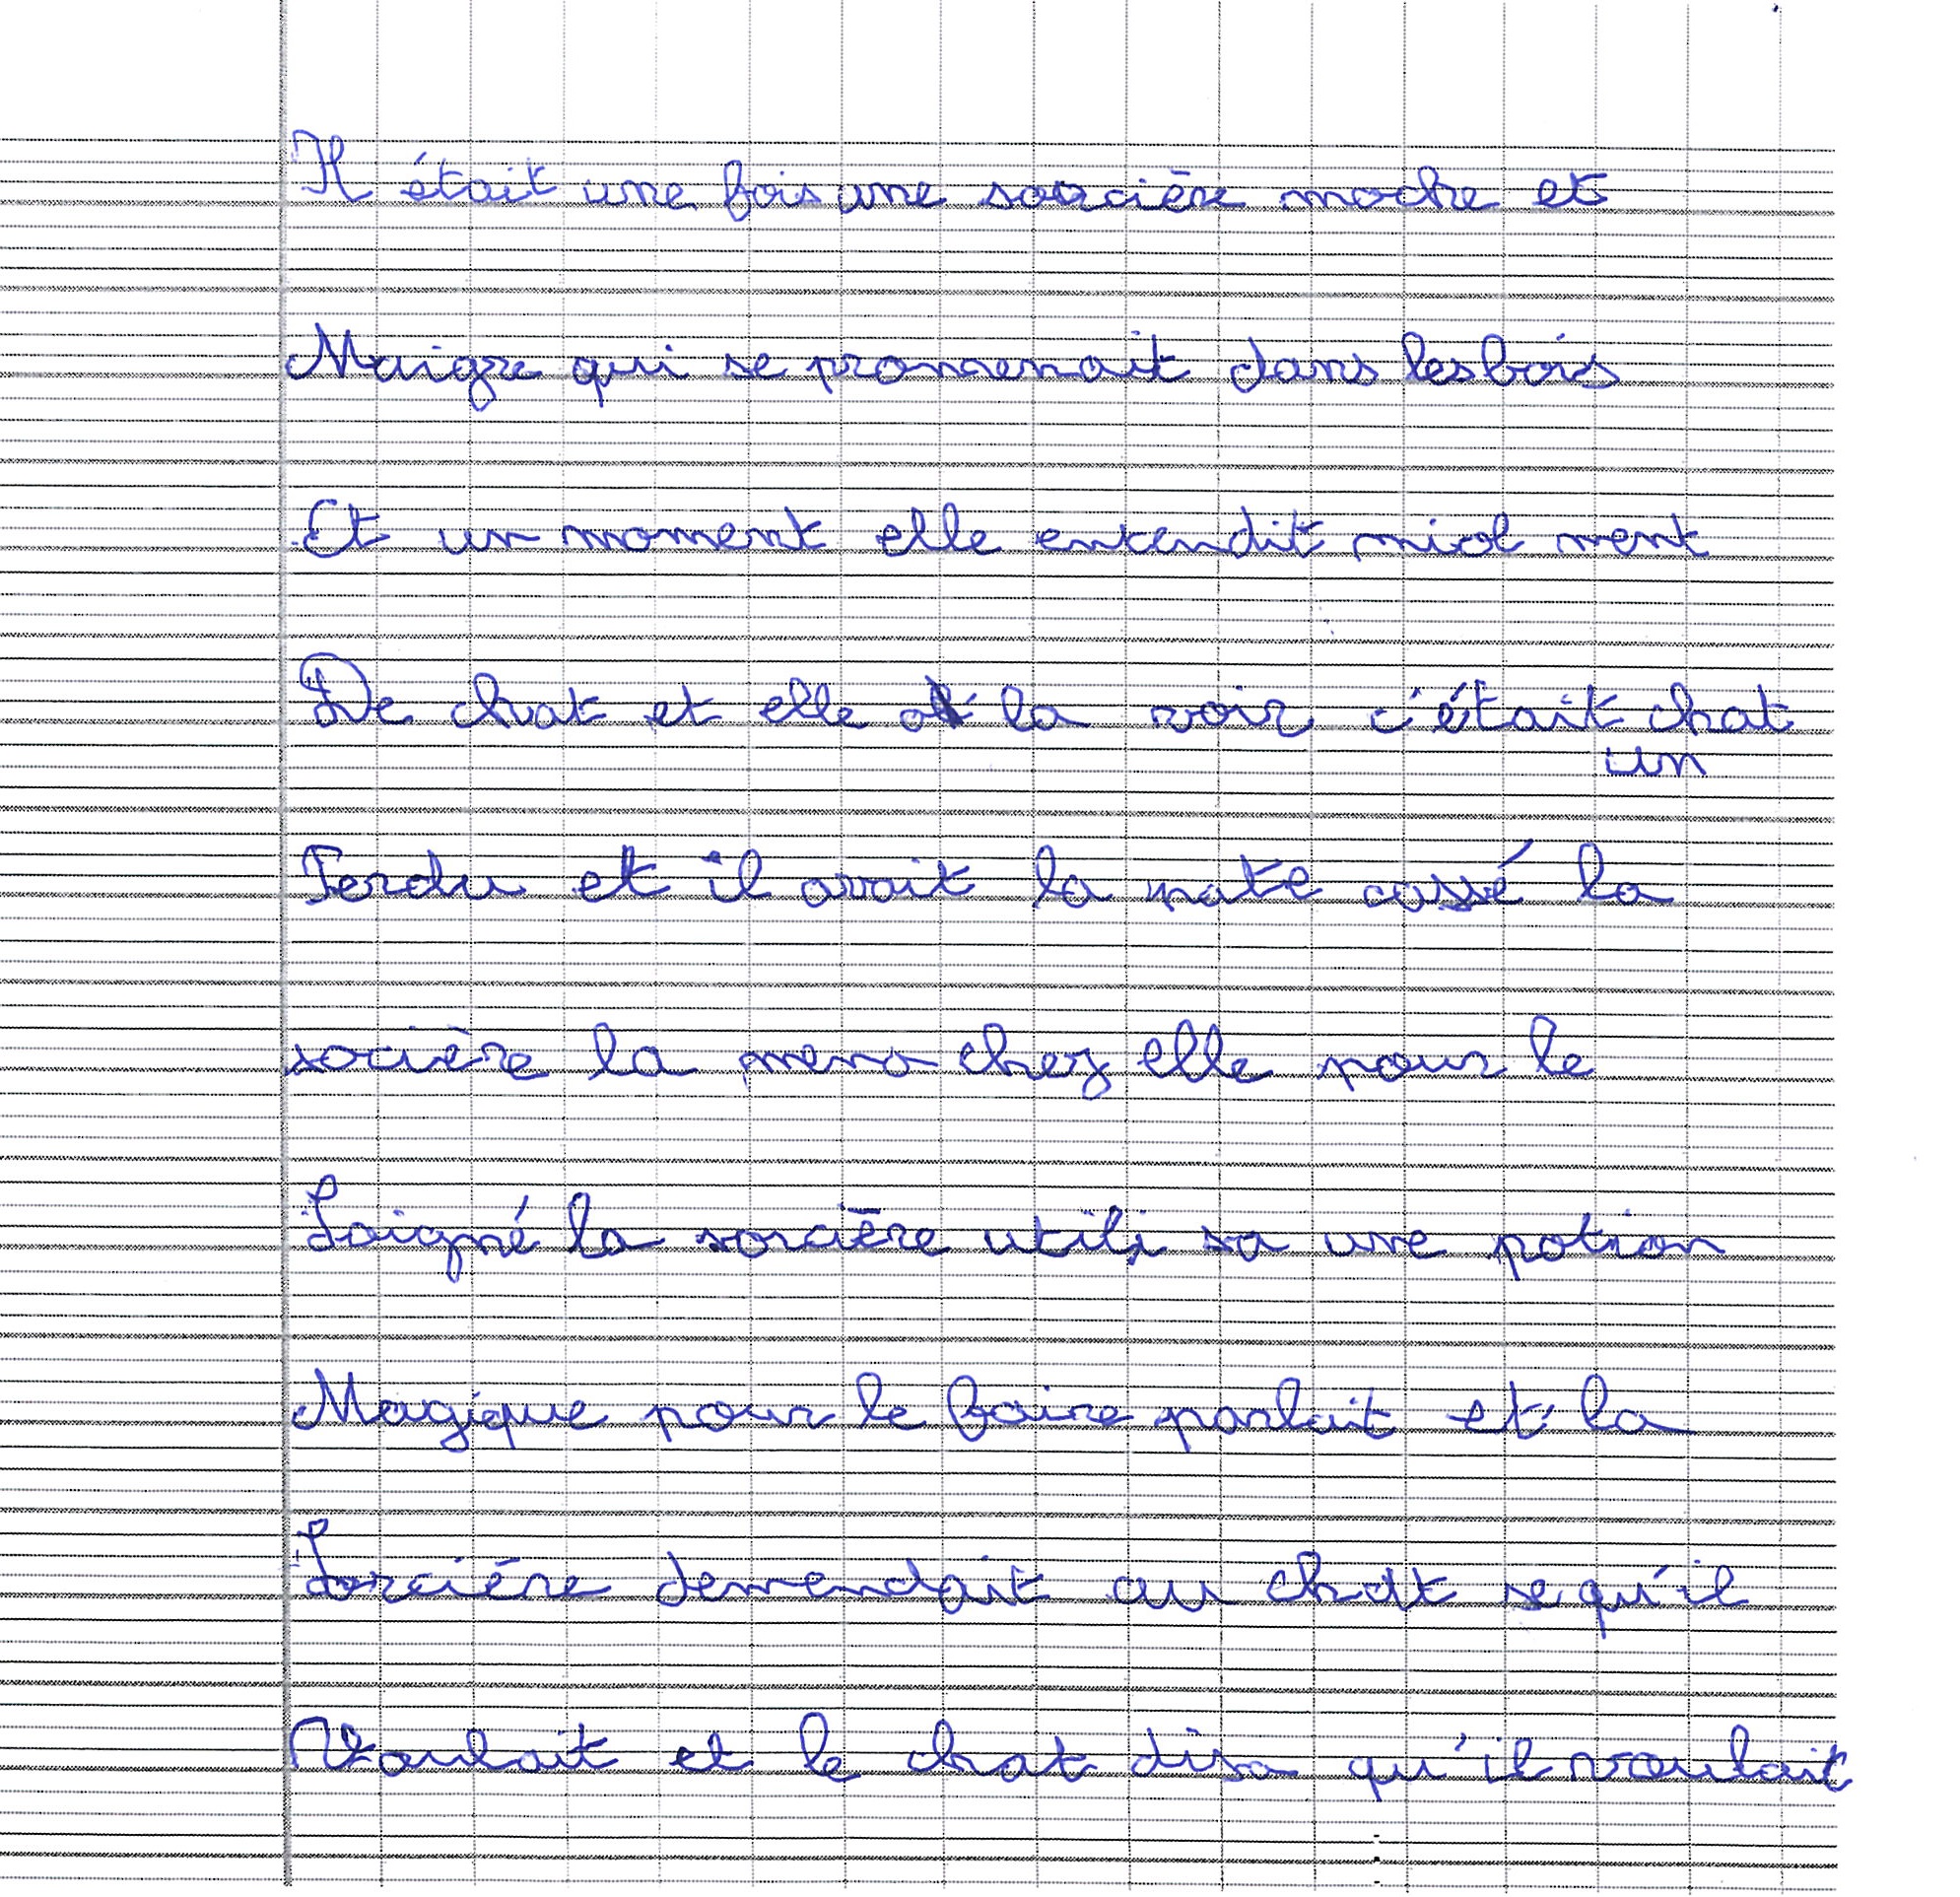 Il était une fois une sorcière moche et
Maigre qui se promenait dans les bois
Et un moment elle entendit miol ment
De chat et elle la voir c'était chat
un
Perdu et il avait la pate cassé la
socière la mena chez elle pour le
Soigné la sorcière utili sa une potion
Magique pour le faire parlait et la
Sorcière demendait au chat se qu'il
Voulait et le chat disa qu'il voulait